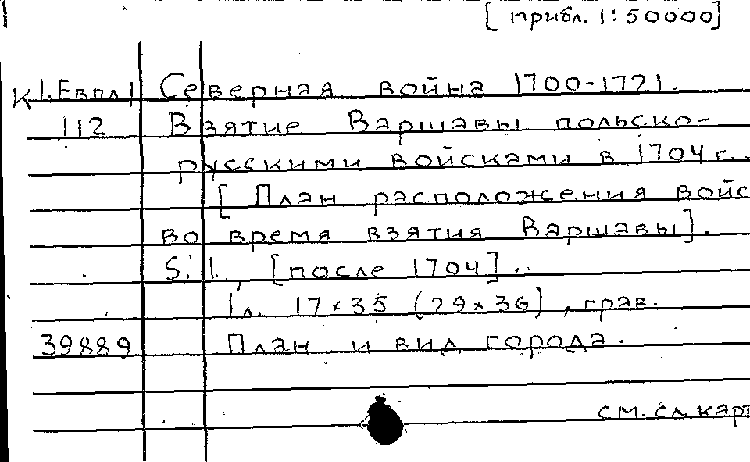 [прибл. 1:50000]
К 1.Евпл1 Северная война 1700-1721.
112 Взятие Варшавы польско-
русскими войсками в 1704 г.
[План расположения войс
во время взятия Варшавы].
S. l., [после 1704].
1 л. 17×35 (29×36), грав.
39889 План и вид города.
см. сл. карт